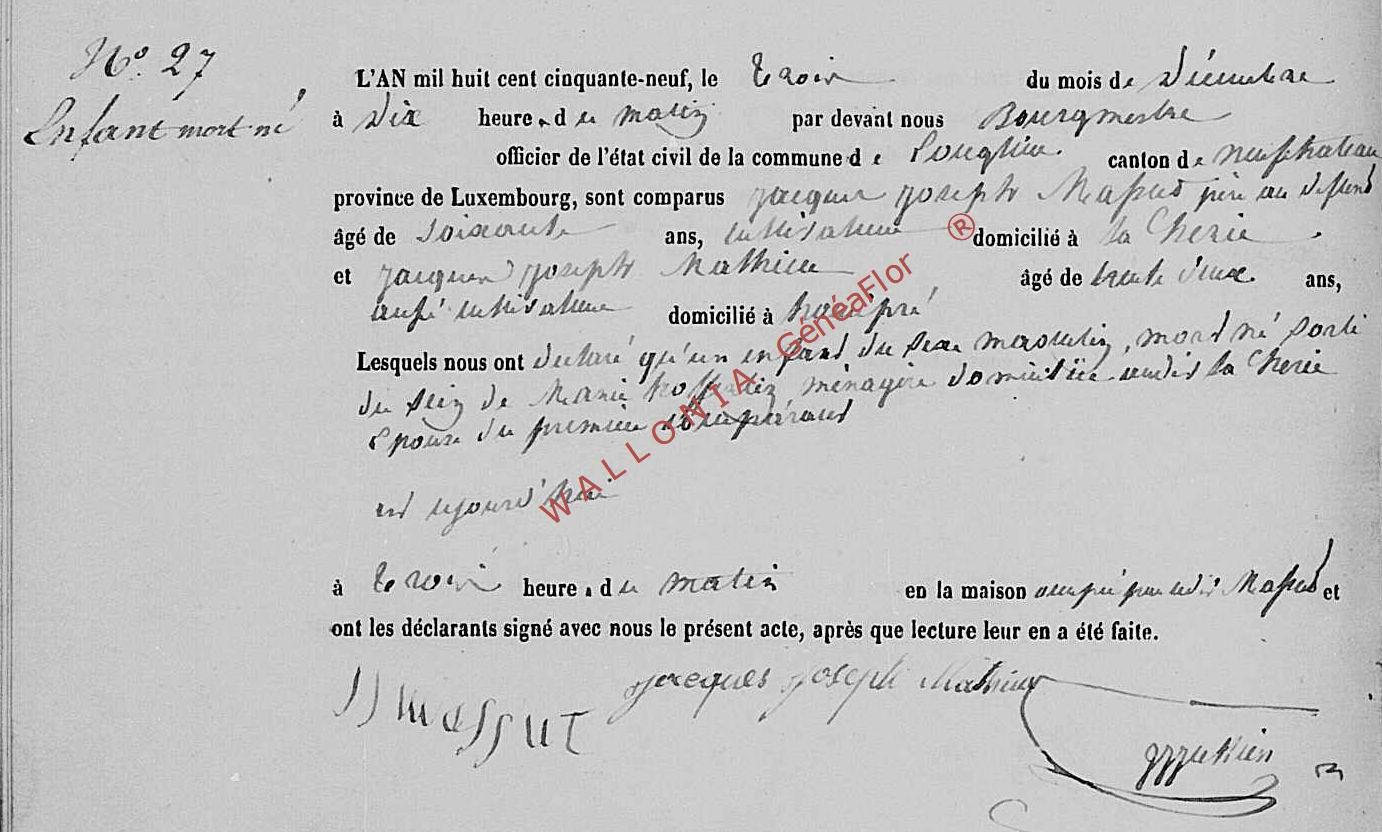 N° 27
Enfant mort né
L'AN mil huit cent cinquante-neuf, le trois du mois de Décembre
à Dix heures du matin par devant nous Bourgmestre
officier de l'état civil de la commune de Longlier. canton de neufchateau
province de Luxembourg, sont comparus Jacques Joseph Massut père au deffunt
âgé de soixante ans, cultivateur domicilié à la Cherie
et Jacques Joseph Mathieu âgé de trente deux ans,
aussi cultivateur domicilié à
Lesquels nous ont déclaré qu'un enfant du sexe masculin, mort né sorti
du sein de Marie ménagère domiciliée audit la Cherie
épouse du premier comparant
est aujourd'hui
à trois heures du matin en la maison occupée par ledit Massut et
ont les déclarants signé avec nous le présent acte, après que lecture leur en a été faite.
JJ Massut Jacques Joseph Mathieu
WALLONIA GénéaFlor ®